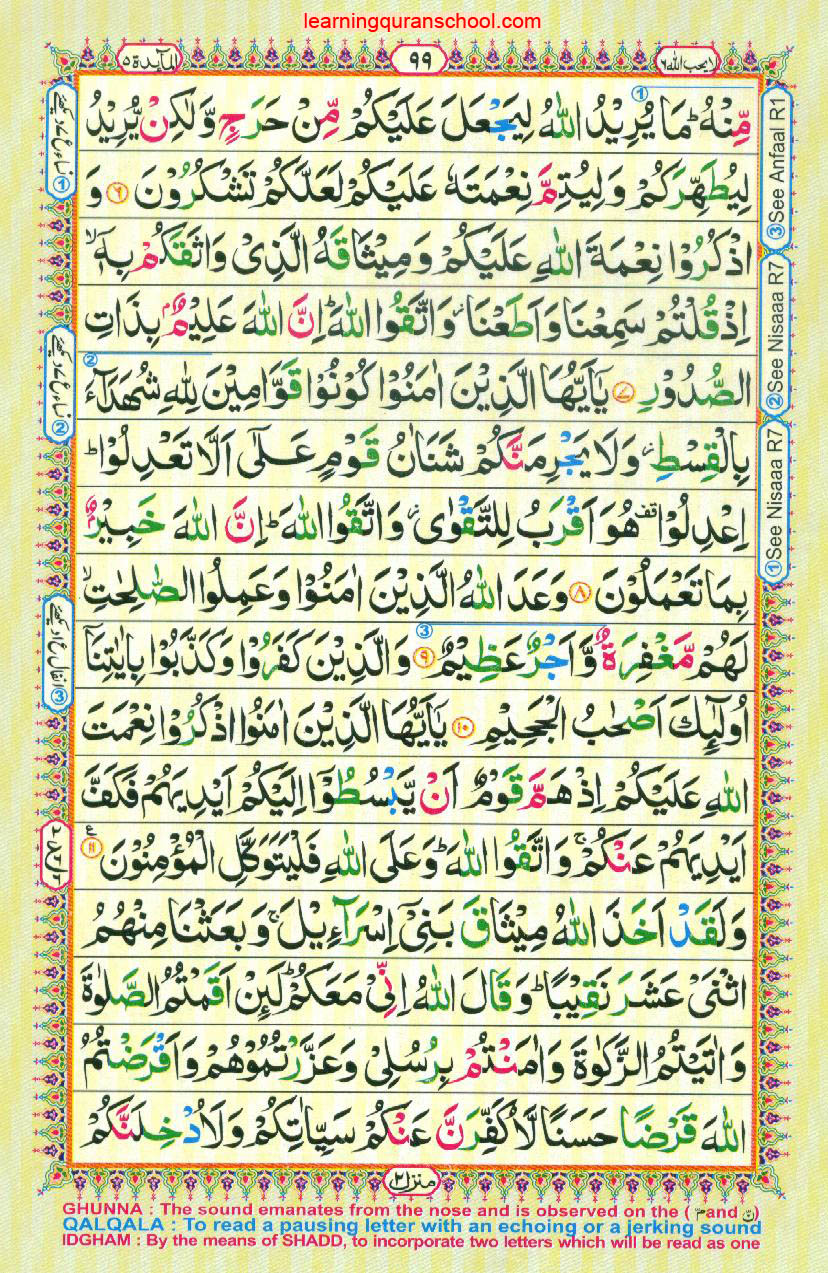 learningquranschool.com
لا یحب الله ٦
٩٩
المآئدة ٥
مِّنْهُ ؕ مَا یُرِیْدُ اللهُ لِیَجْعَلَ عَلَیْكُمْ مِّنْ حَرَجٍ وَّلٰكِنْ یُّرِیْدُ
لِیُطَهِّرَكُمْ وَ لِیُتِمَّ نِعْمَتَهٗ عَلَیْكُمْ لَعَلَّكُمْ تَشْكُرُوْنَ ۶ وَ
اذْكُرُوْا نِعْمَةَ اللهِ عَلَیْكُمْ وَ مِیْثَاقَهُ الَّذِیْ وَاثَقَكُمْ بِهٖۤ ۙ
اِذْ قُلْتُمْ سَمِعْنَا وَ اَطَعْنَا ؗ وَ اتَّقُوا اللهَ ؕ اِنَّ اللهَ عَلِیْمٌۢ بِذَاتِ
الصُّدُوْرِ ۷ یٰۤاَیُّهَا الَّذِیْنَ اٰمَنُوْا كُوْنُوْا قَوّٰمِیْنَ لِلّٰهِ شُهَدَآءَ
بِالْقِسْطِ ؗ وَ لَا یَجْرِمَنَّكُمْ شَنَاٰنُ قَوْمٍ عَلٰۤی اَلَّا تَعْدِلُوْا ؕ
اِعْدِلُوْا قف هُوَ اَقْرَبُ لِلتَّقْوٰی ؗ وَ اتَّقُوا اللهَ ؕ اِنَّ اللهَ خَبِیْرٌۢ
بِمَا تَعْمَلُوْنَ ۸ وَعَدَ اللهُ الَّذِیْنَ اٰمَنُوْا وَ عَمِلُوا الصّٰلِحٰتِ ۙ
لَهُمْ مَّغْفِرَةٌ وَّ اَجْرٌ عَظِیْمٌ ۹ وَ الَّذِیْنَ كَفَرُوْا وَ كَذَّبُوْا بِاٰیٰتِنَاۤ
اُولٰٓئِكَ اَصْحٰبُ الْجَحِیْمِ ۱۰ یٰۤاَیُّهَا الَّذِیْنَ اٰمَنُوا اذْكُرُوْا نِعْمَتَ
اللهِ عَلَیْكُمْ اِذْ هَمَّ قَوْمٌ اَنْ یَّبْسُطُوْۤا اِلَیْكُمْ اَیْدِیَهُمْ فَكَفَّ
اَیْدِیَهُمْ عَنْكُمْ ۚ وَ اتَّقُوا اللهَ ؕ وَ عَلَی اللهِ فَلْیَتَوَكَّلِ الْمُؤْمِنُوْنَ ۱۱
وَ لَقَدْ اَخَذَ اللهُ مِیْثَاقَ بَنِیْۤ اِسْرَآءِیْلَ ۚ وَ بَعَثْنَا مِنْهُمُ
اثْنَیْ عَشَرَ نَقِیْبًا ؕ وَ قَالَ اللهُ اِنِّیْ مَعَكُمْ ؕ لَئِنْ اَقَمْتُمُ الصَّلٰوةَ
وَ اٰتَیْتُمُ الزَّكٰوةَ وَ اٰمَنْتُمْ بِرُسُلِیْ وَ عَزَّرْتُمُوْهُمْ وَ اَقْرَضْتُمُ
اللهَ قَرْضًا حَسَنًا لَّاُكَفِّرَنَّ عَنْكُمْ سَیِّاٰتِكُمْ وَ لَاُدْخِلَنَّكُمْ
③See Anfaal R1
②See Nisaaa R7
①See Nisaaa R7
منزل ٢
GHUNNA : The sound emanates from the nose and is observed on the ( مّ and نّ )
QALQALA : To read a pausing letter with an echoing or a jerking sound
IDGHAM : By the means of SHADD, to incorporate two letters which will be read as one